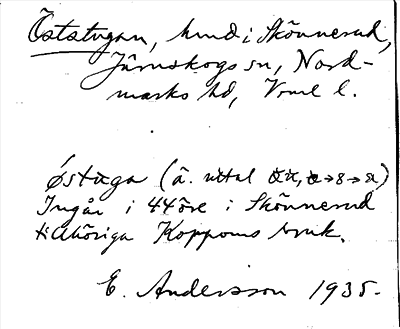 Öststugan, hmd i Skönnerud,
Järnskogs sn, Nord-
marks hd, Vrml l.
östuga (ä. uttal
Ingår i 44 öre i Skönnerud
tillhöriga Koppoms bruk.
E. Andersson 1935.